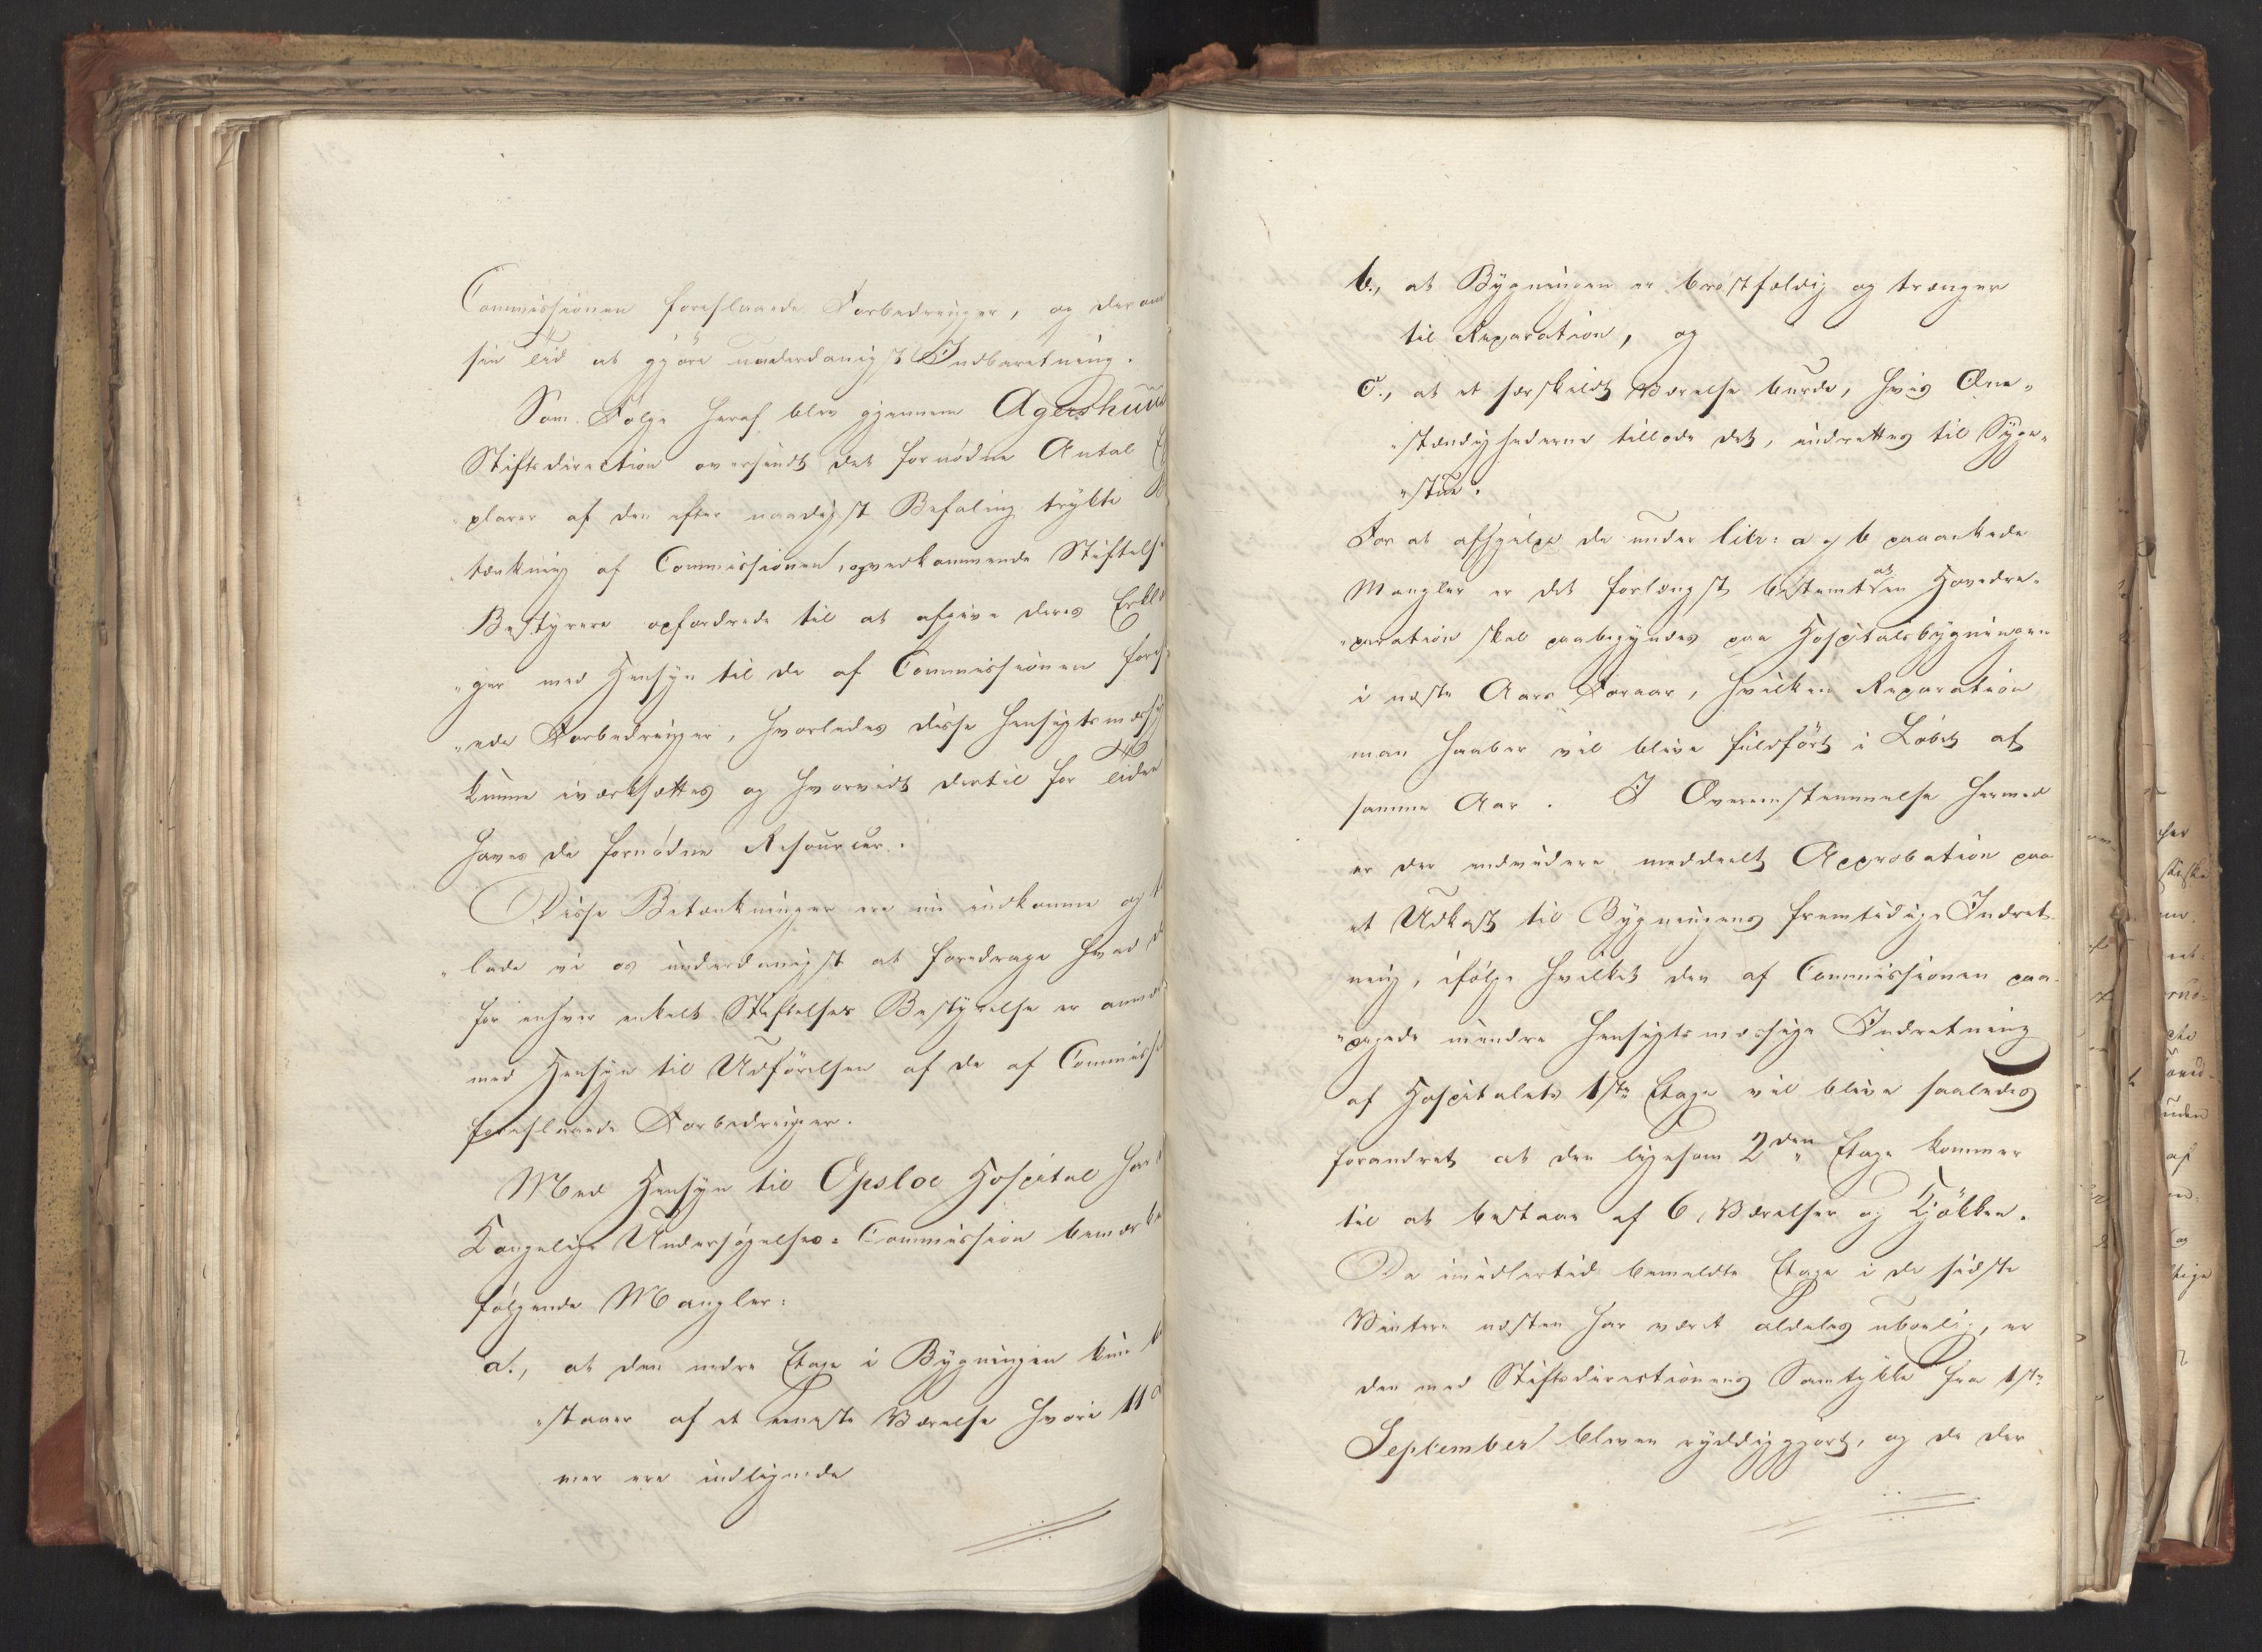 Commissionen foreslaaede Forbedringer, og derom
sin Tid at gjøre underdanigst Indberetning.
Som Følge heraf blev gjennem Agershuus
Stiftsdirection oversendt det fornødne Antal
plarer af den efter naadigst Befaling trykte
tænkning af Commissionen, og vedkommende Stiftels
Bestyrere opfordrede til at afgive deres Erklæ
"ger med Hensyn til de af Commissionen fores
"ede Forbedringer, hvorledes disse hensigtsmæssig
kunne iværksættes og hvorvidt dertil for Tiden
haves de fornødne Resourcer.
Disse Betænkninger ere nu indkomne og
"lade vi os underdanigst at foredrage hvad
for enhver enkelt Stiftelses Bestyrelse er anmæ
med Hensyn til Udførelsen af de af Commissio
foreslaaede Forbedringer.
Med Hensyn til Opsloe Hospital har
Kongelige Undersøgelses-Commission bemærke
følgende Mangler:
a., at den nedre Etage i Bygningen kun b
"staaer af et eneste Værelse hvori 11
mer ere indlignede
b., at Bygningen er brøstfældig og trænger
til Reparation, og
c., at et særskildt Værelse burde, hvis Om-
"stændighederne tillode det, indrettes til Syge-
"stue.
For at afhjelpe de under litr: a og b paaankede
Mangler er det forlængst bestemt at en Hovedre-
"paration skal paabegyndes paa Hospitalsbygningen
i næste Aars Foraar, hvilken Reparation
man haaber vil blive fuldført i Løbet af
samme Aar. I Overeensstemmelse hermed
er der endvidere meddeelt Approbation paa
et Udkast til Bygningens fremtidige Indret-
ning, ifølge hvilket den af Commissionen paa-
"pegede mindre hensigtsmæssige Indretning
af Hospitalets 1ste Etage vil blive saaledes
forandret at den ligesom 2den Etage kommer
til at bestaae af 6 Værelser og Kjøkken.
Da imidlertid bemeldte Etage i de sidste
Vintere næsten har været aldeles uboelig, er
den med Stiftsdirectionens Samtykke fra 1ste
September bleven ryddiggjort, og de der